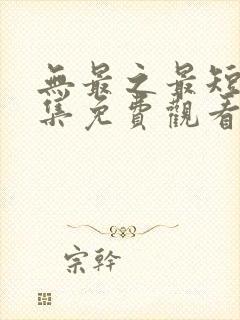 無最之最短
集免費觀看
宗幹